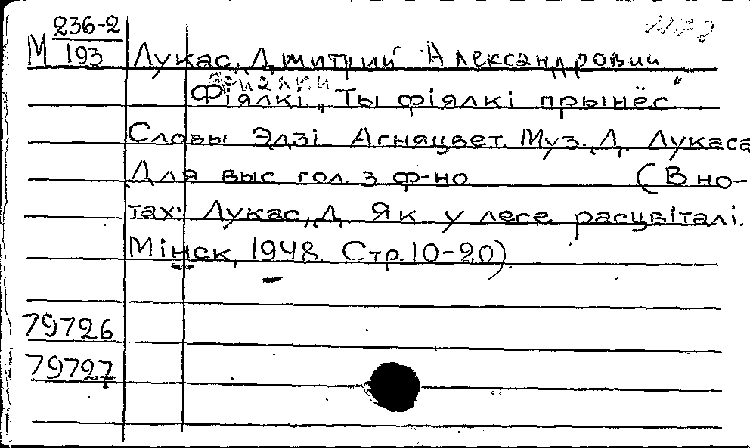 М 236-2
193
Лукас, Дмитрий Александрович
Фиалки
Фіялкі „Ты фіялкі прынёс"
Словы Эдзі Агняцвет. Муз. Д. Лукаса
Для выс. гол. з ф-но (В но-
тах: Лукас, Д. Як у лесе расцвіталі.
Мінск, 1948. Стр. 10-20).
79726
79727